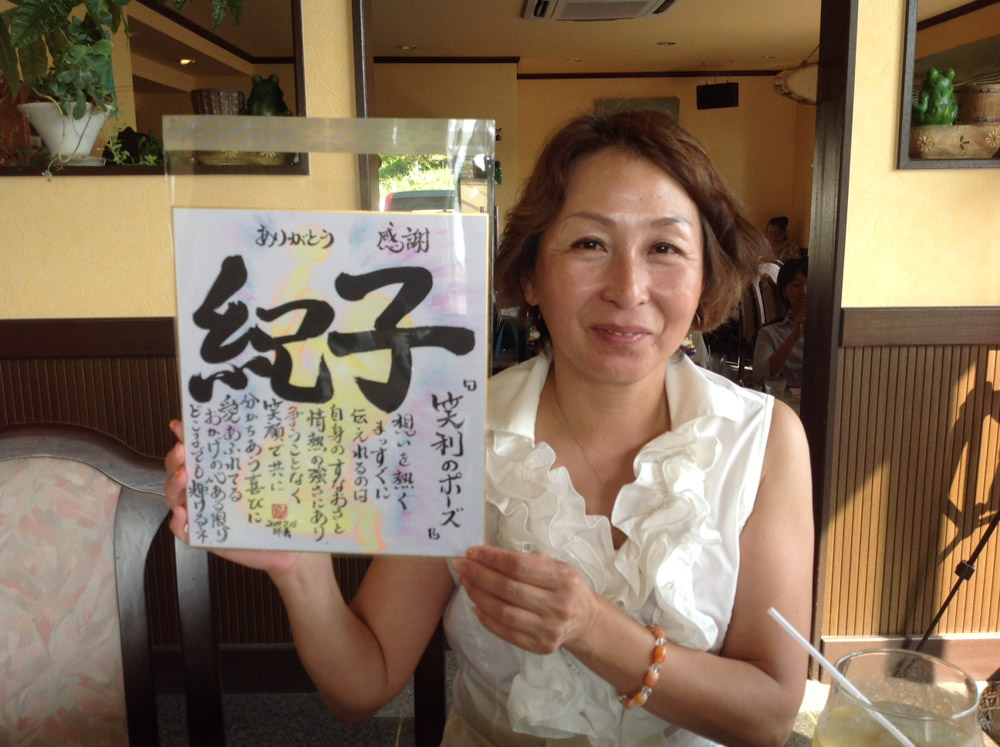 ありがとう　感謝
紀子
『笑利のポーズ』
想いを熱く
まっすぐに
伝えれるのは
自身のすなおさと
情熱の強さにあり
争うことなく
笑顔で共に
分かちあう喜びに
愛あふれてる
おかげの心ある限り
どこまでも輝けるネ